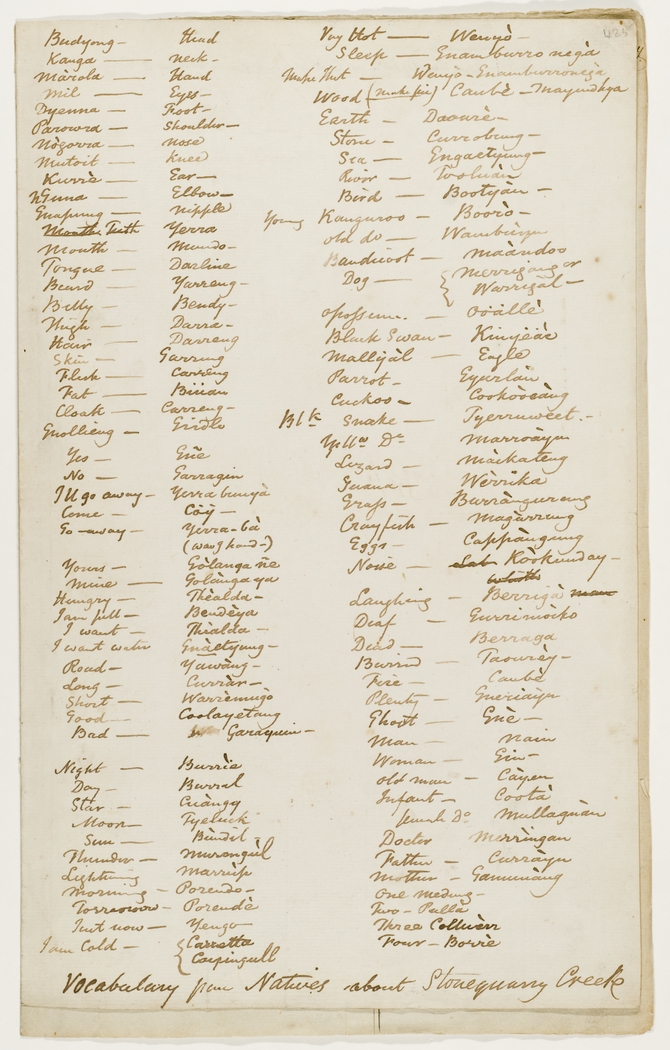 Budyong — Head
Kanga — neck —
Màrola — Hand
Mil — Eyes —
Dyenna — Foot —
Parowra — Shoulder —
Nògorra — nose
Mutoit — Knee
Kurrìe — Ear —
nGuna — Elbow —
Gnapung — nipple
Teeth Yerra
Mouth — Mundo —
Tongue — Darline
Beard — Yarreng —
Belly — Bendy —
Thigh — Darra —
Hair — Darreng
Skin — Garring
Flesh — Carreng
Fat — Biiian
Cloak — Carreng —
Gnollieng — Gridlo
Yes — Gñe
No — Garragin
I'll go away — Yerra bunyà
Come — Cày —
Go away — Yerra-bà
(wavg hand —)
Yours — Gòlanga ñe
Mine — Golànga ya
Hungry — Thèalda —
I am full — Bendèya
I want — Thèalda —
I want water Gnàetyung —
Road — Yuwàng —
Long — Curràr —
Short — Warrèmugo
Good — Coolayetang
Bad — Garaguin —
Night — Burrìe
Day — Burral
Star — Cuàngy
Moon — Tyeluck
Sun — Bùndil —
Thunder — Murongùl
Lightning — Marrùp
Morning — Porendo —
Torrorow — Porendè
Just now — Yengo
I am Cold — { Carretta
Caipingull
Vay Hot — Wenyò —
Sleep — Enamburro negà
Make Hut — Wenyò - Enamburronegà
Wood (make fire) Caubè — Mayundhya
Earth — Daourè —
Stone — Currobung —
Sea — Engaetyung —
River — Tooluàn
Bird — Bootyàn —
Young Kangaroo — Booro —
old do — Wambuèyn
Bandicoot — maàndoo
Dog — { Merrigang or
Warrigal —
Opossum — Oòallè
Black Swan — Kinyèàc
Mallyàl — Eagle
Parrot — Eyurlàn
Cuckoo — Cookooèàng
Blk Snake — Tyerruweet. —
Yellw Do — Marroàyn
Lizard — Màikateng
Guana — Wèrrika
Grass — Burràngureng
Crayfish — Magàrreng
Eggs — Cappàngung
Noise — Kòokunday —
Laughing — Berrigà
Deaf — Gurrimòiko
Dead — Berraga
Burrid — Taourèy —
Fire — Caubè
Plenty — Gneriàyn
Ghost — Gñe —
Man — nain
Woman — Gin —
old man — Càyen
Infant — Cootà
female Do — Mullagnàn
Doctor Merringan
Father — Curràyn
Mother — Gamunàng
One meding —
Two — Pulla
Three Colluèrr
Four — Borrie
Vocabulary from Natives about Stonequarry Creek